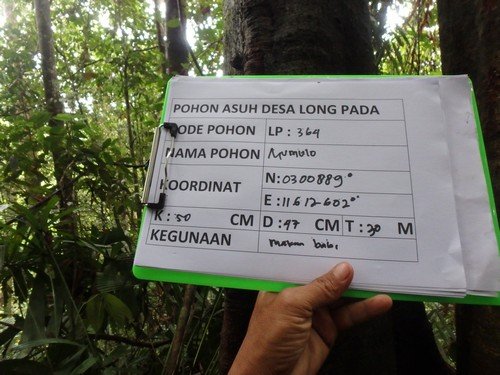 POHON ASUH DESA LONG PADA
KODE POHON LP : 364
NAMA POHON
KOORDINAT N : 0300889°
E : 11612602°
K : 50 CM D : 47 CM T : 30 M
KEGUNAAN makan babi